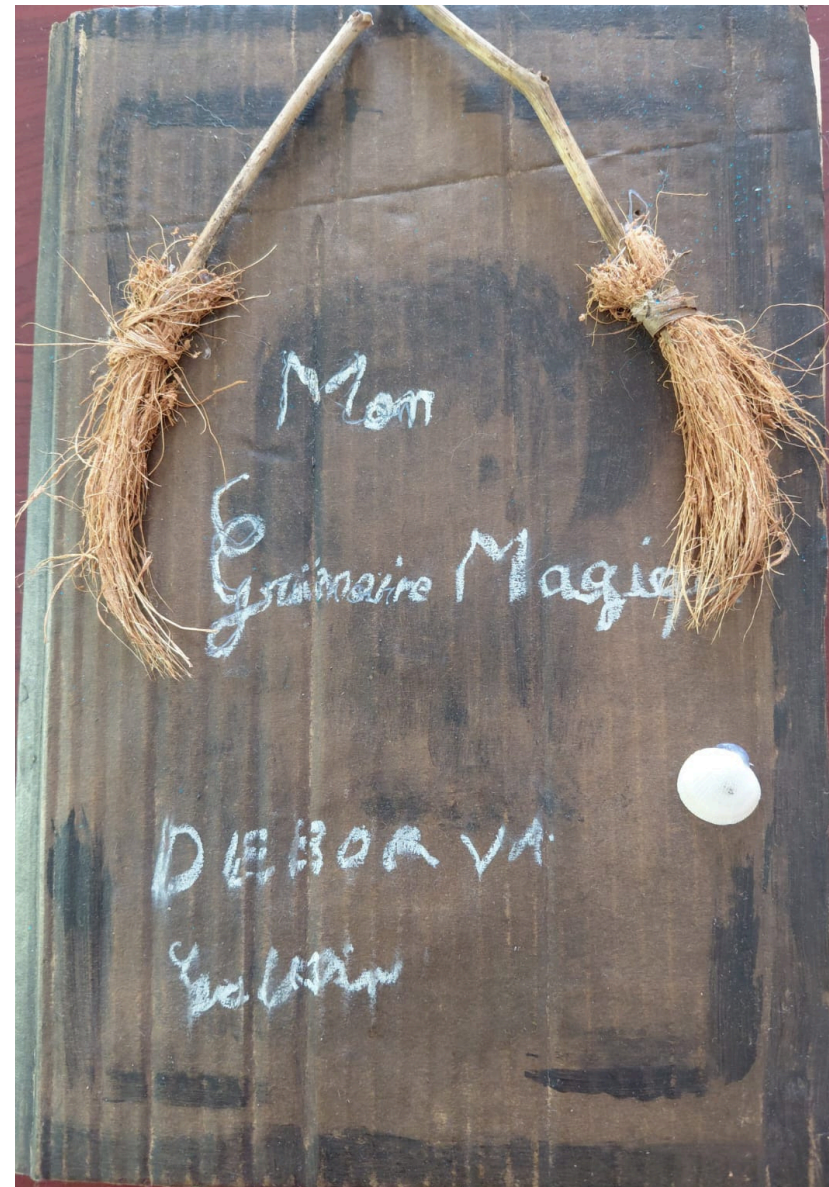 Mon
Grimoire Magiq
DEBORVA